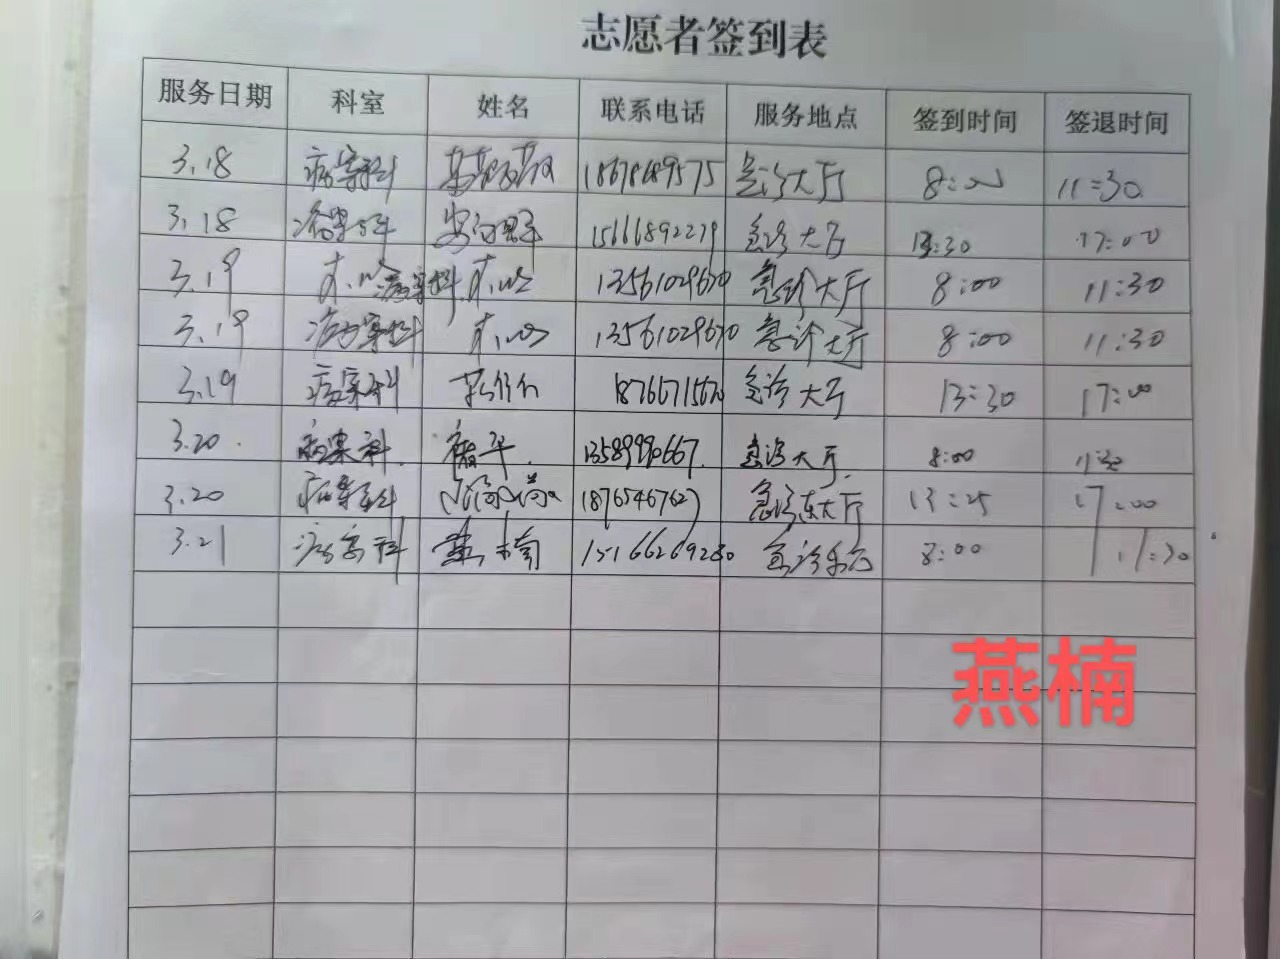 志愿者签到表
服务日期 科室 姓名 联系电话 服务地点 签到时间 签退时间
3.18 病案科 急诊大厅 8:00 11:30
3.18 病案科 15666892279 急诊大厅 13:30 17:00
3.19 病案科 13561029670 急诊大厅 8:00 11:30
3.19 病案科 13561029670 急诊大厅 8:00 11:30
3.19 病案科 急诊大厅 13:30 17:00
3.20. 病案科. 13589990667. 急诊大厅. 8:00 11:30
3.20 病案科 18765467627 急诊东大厅 13:25 17:00
3.21 病案科 燕楠 15166269280 急诊 8:00 11:30
燕楠